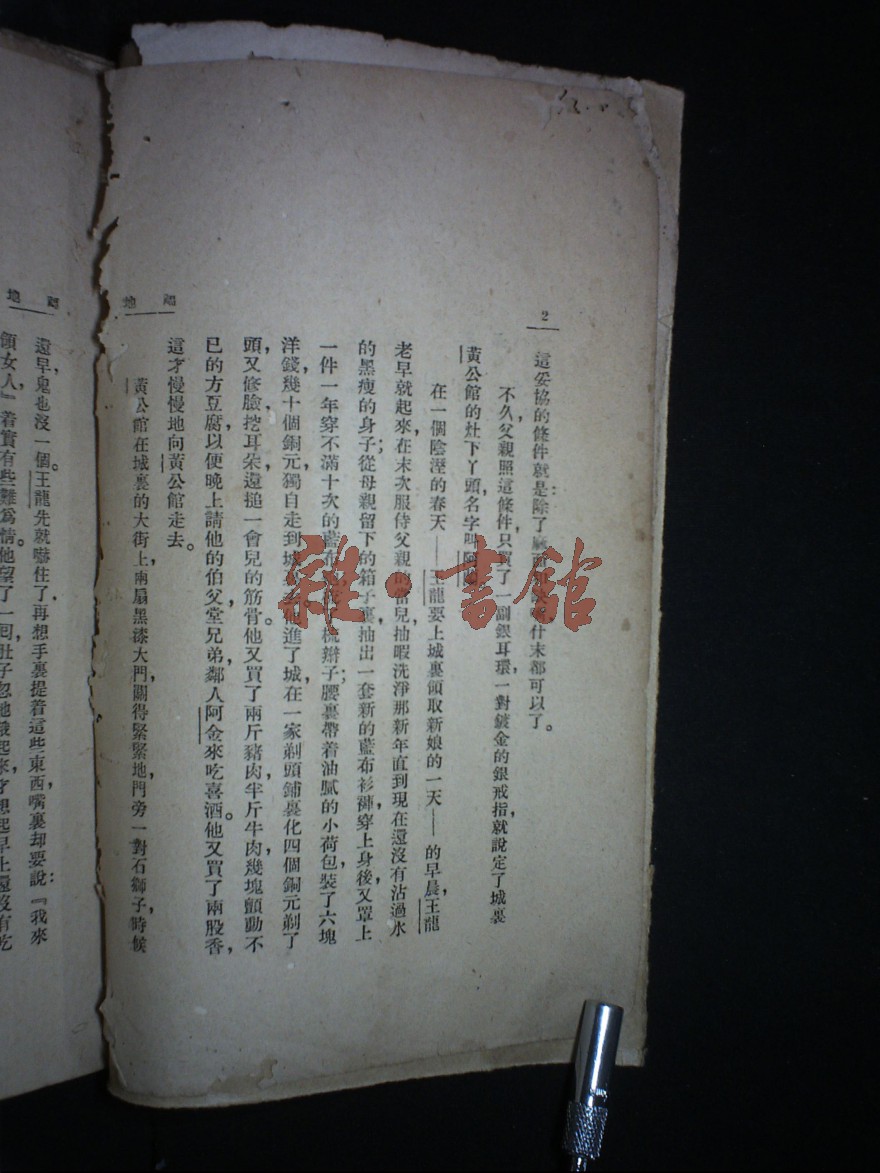 2
這妥協的條件就是：除了麻面
什末都可以了。
不久，父親照這條件，只買了一副銀耳環，一對鍍金的銀戒指，就說定了城裏
黃公館的灶下丫頭，名字叫阿
在一個陰溼的春天——王龍要上城裏領取新娘的一天——的早晨，王龍
老早就起來，在末次服侍父親的當兒，抽暇洗淨那新年直到現在還沒有沾過水
的黑瘦的身子；從母親留下的箱子裏，抽出一套新的藍布衫褲，穿上身後，又罩上
一件一年穿不滿十次的藍布
梳辮子；腰裏帶着油膩的小荷包，裝了六塊
洋錢，幾十個銅元，獨自走到城
他進了城，在一家剃頭鋪裏化四個銅元剃了
頭，又修臉，挖耳朵，還搥一會兒的筋骨。他又買了兩斤豬肉，半斤牛肉，幾塊顫動不
已的方豆腐，以便晚上請他的伯父，堂兄弟，鄰人阿金來吃喜酒。他又買了兩股香，
這才慢慢地向黃公館走去。
黃公館在城裏的大街上，兩扇黑漆大門關得緊緊地，門旁一對石獅子，時候
地
還早，鬼也沒一個。王龍先就嚇住了，再想手裏提着這些東西，嘴裏却要說：『我來
領女人』着實有些難爲情。他望了一回，肚子忽地餓起來，才想起早上還沒有吃
地
雜·書館